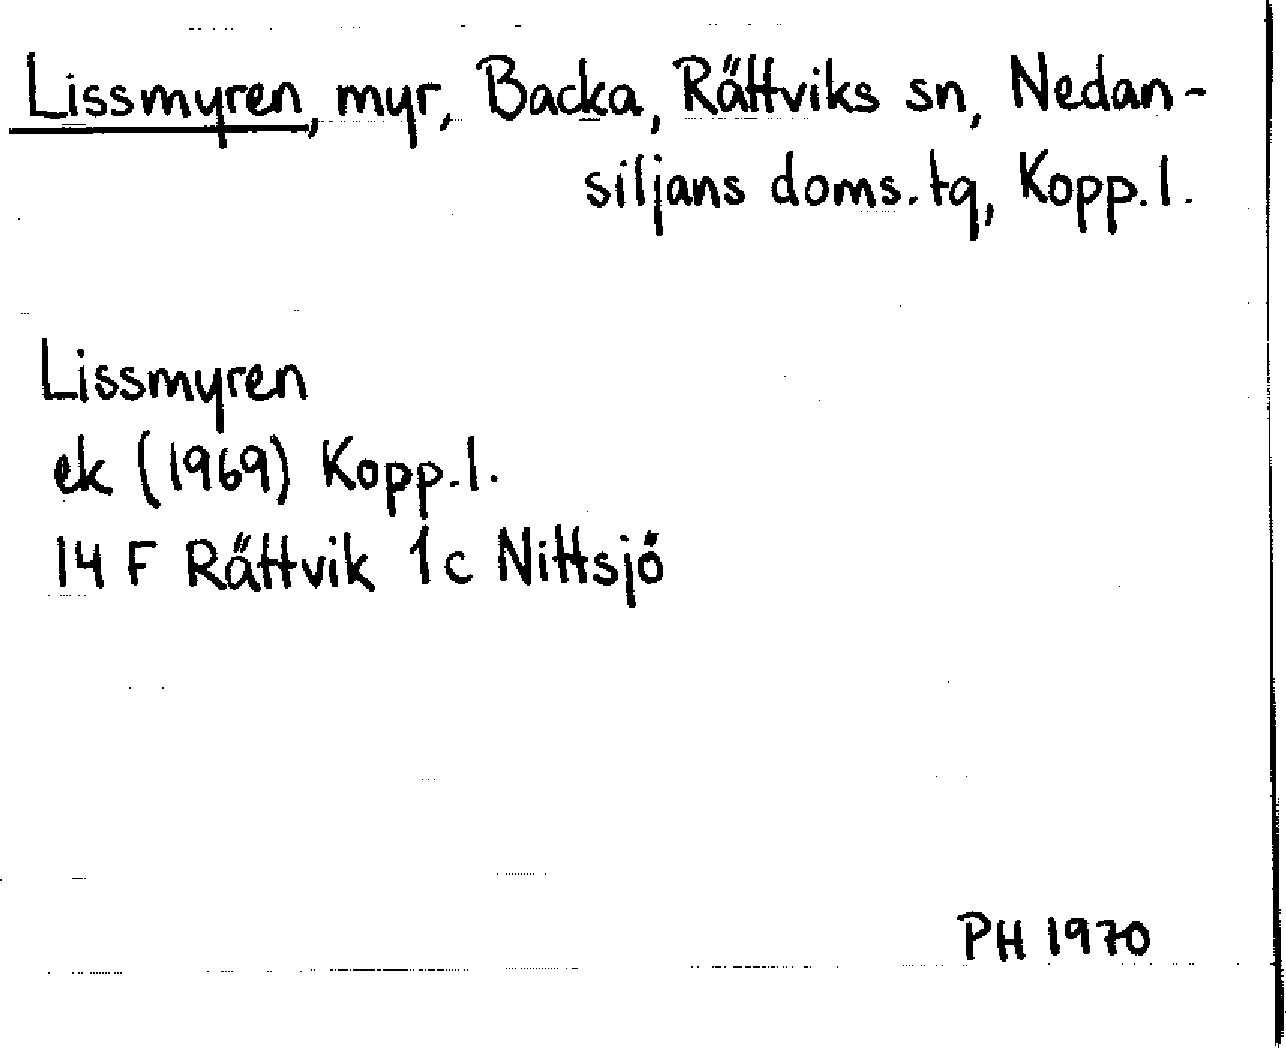 Lissmyren, myr, Backa, Rättviks sn, Nedan-
siljans doms.tg, Kopp.l.
Lissmyren
ek (1969) Kopp.l.
14 F Rättvik 1c Nittsjö
PH 1970